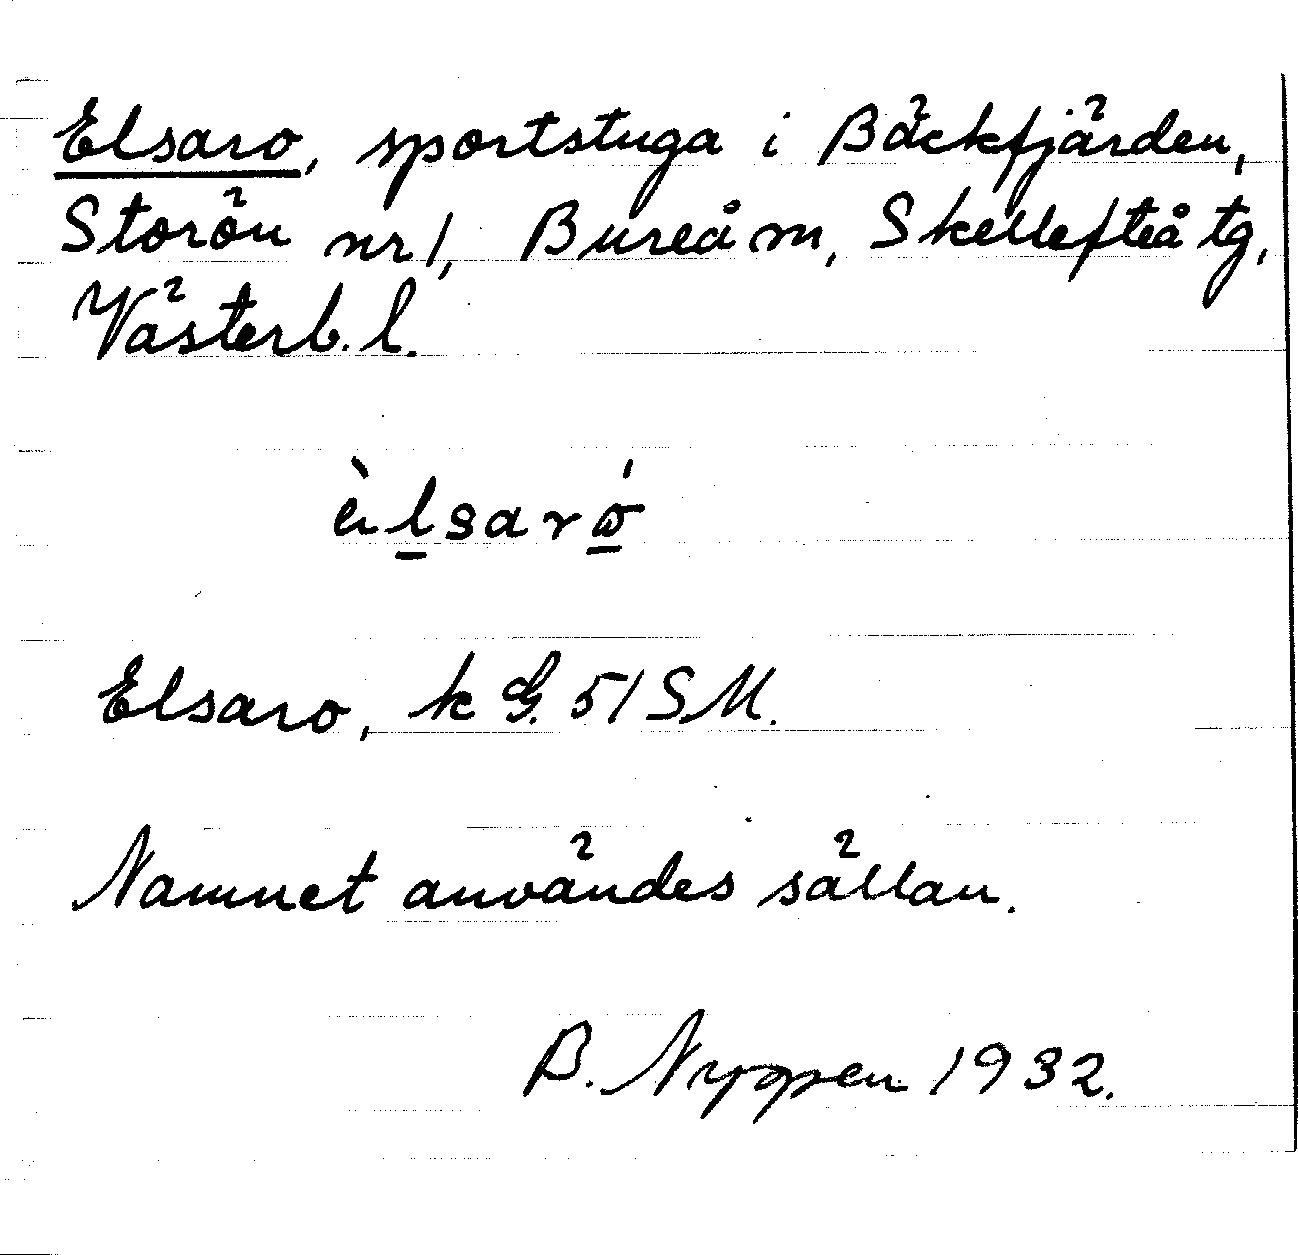 Elsaro, sportstuga i Bäckfjärden,
Storön nr 1, Bureå m, Skellefteå tg,
Västerb. l.
Elsaro, k G. 51 SM.
Namnet användes sällan.
B. Nyppen 1932.